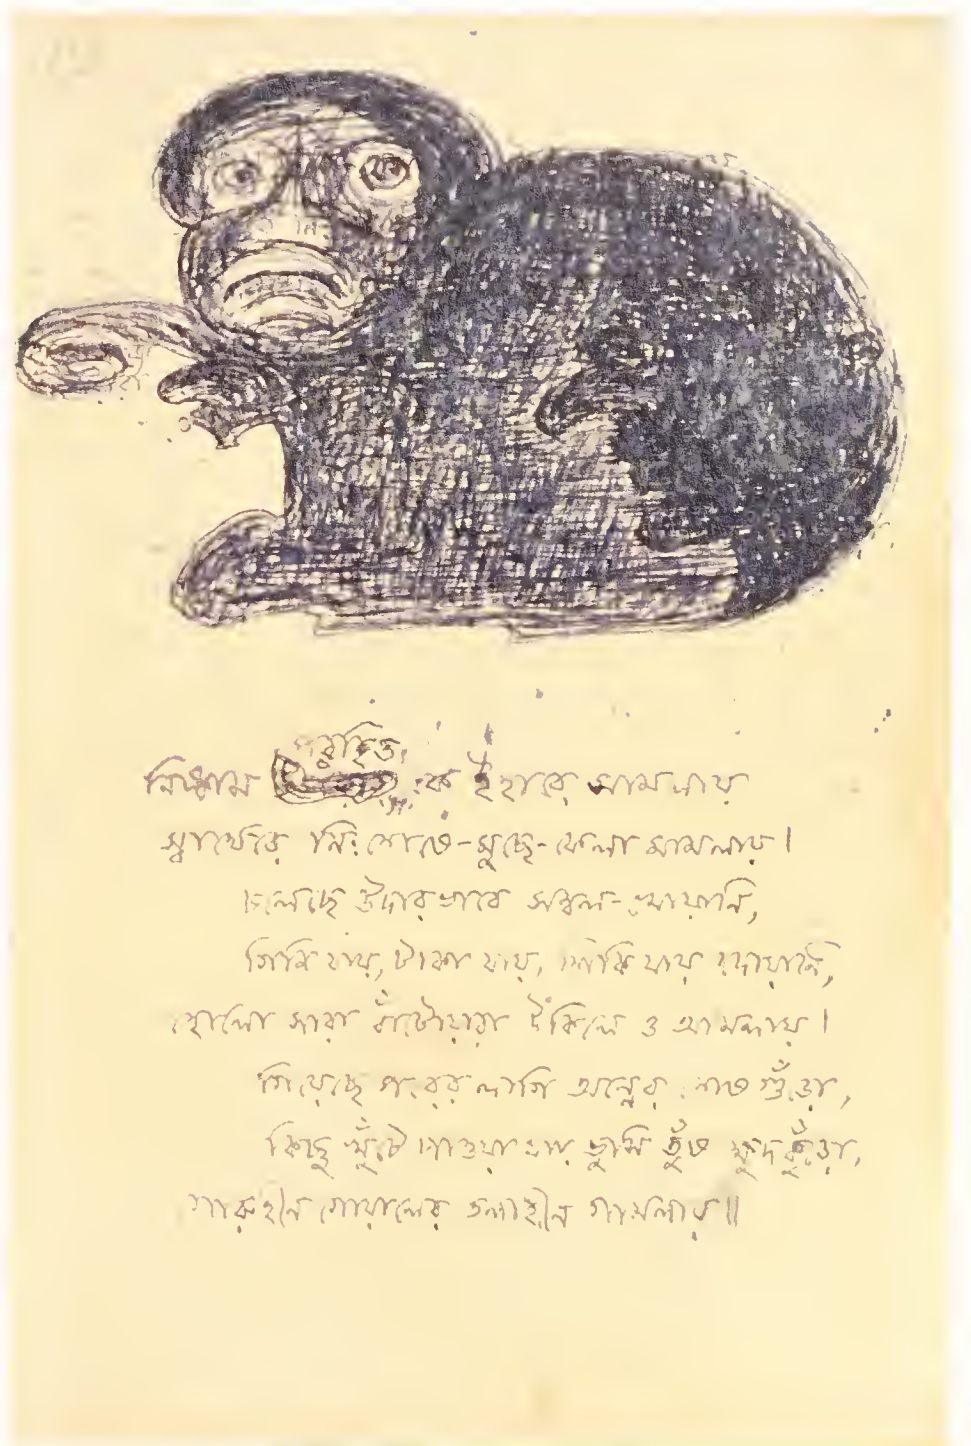 নিষ্কাম পরহিতে কে ইহারে সামলায়
স্বার্থেরে নিঃশেষে-মুছে-ফেলা মামলায়।
চলেছে উদারভাবে সম্বল-খোয়ানি,
গিনি যায়, টাকা যায়, সিকি যায় দোয়ানি,
হোলো সারা বাঁটোয়ারা উকিলে ও আমলায়।
গিয়েছে পরের লাগি অন্নের শেষ গুঁড়া,
কিছু খুঁটে পাওয়া যায় ভূমি তুঁষ খুদকুঁড়া,
গোরুহীন গোয়ালের তলাহীন গামলায়॥